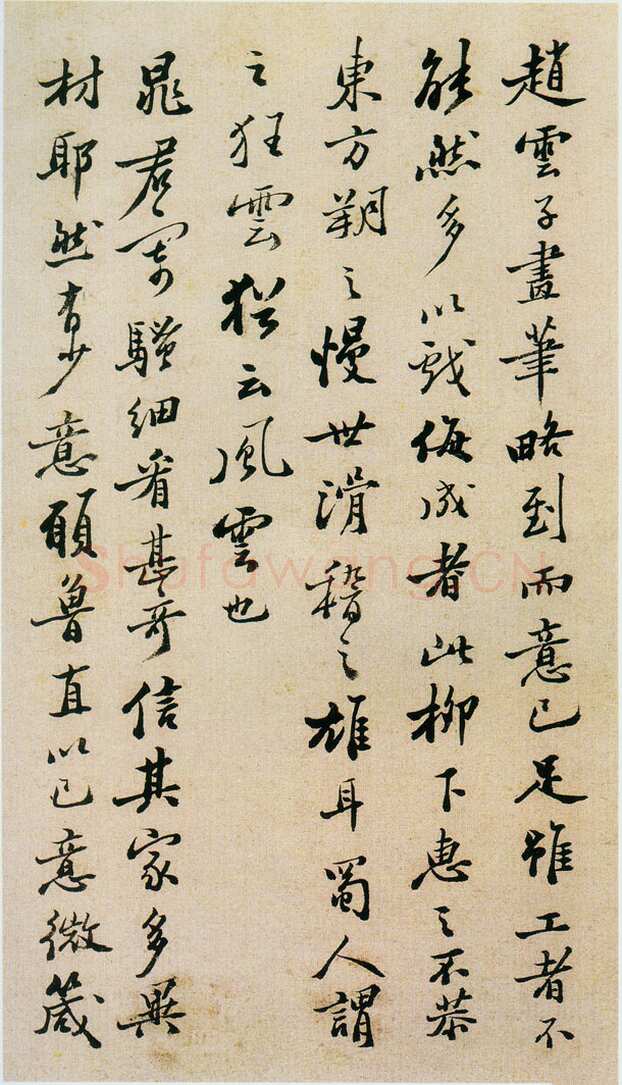 趙雲子畫筆略到而意已足雖工者不
能然多以戲侮成者此柳下惠之不恭
東方朔之慢世滑稽之雄耳蜀人謂
之狂雲猶云風雲也
晁君寄騷細看甚奇信其家多異
材耶然有少意願魯直以已意微箴
Shufawang.CN